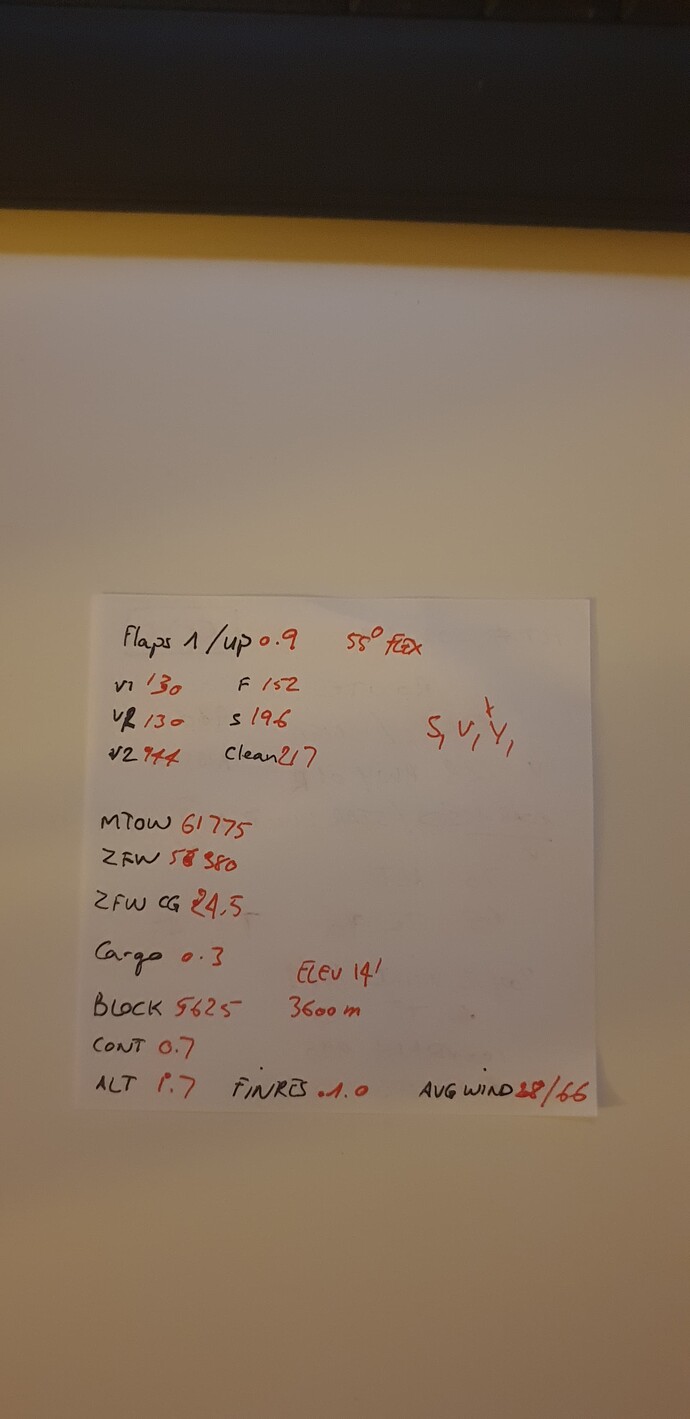 Flaps 1/up 0.9 55° FLEX
V1 130 F 152
VR 130 S 196
V2 144 Clean 217
S, V, Y,
MTOW 61775
ZFW 380
ZFW CG 24.5
Cargo 0.3
ELEV 14'
BLOCK 5625 3600 m
CONT 0.7
ALT 1.7 FINRES .1.0 AVG WIND 28/66